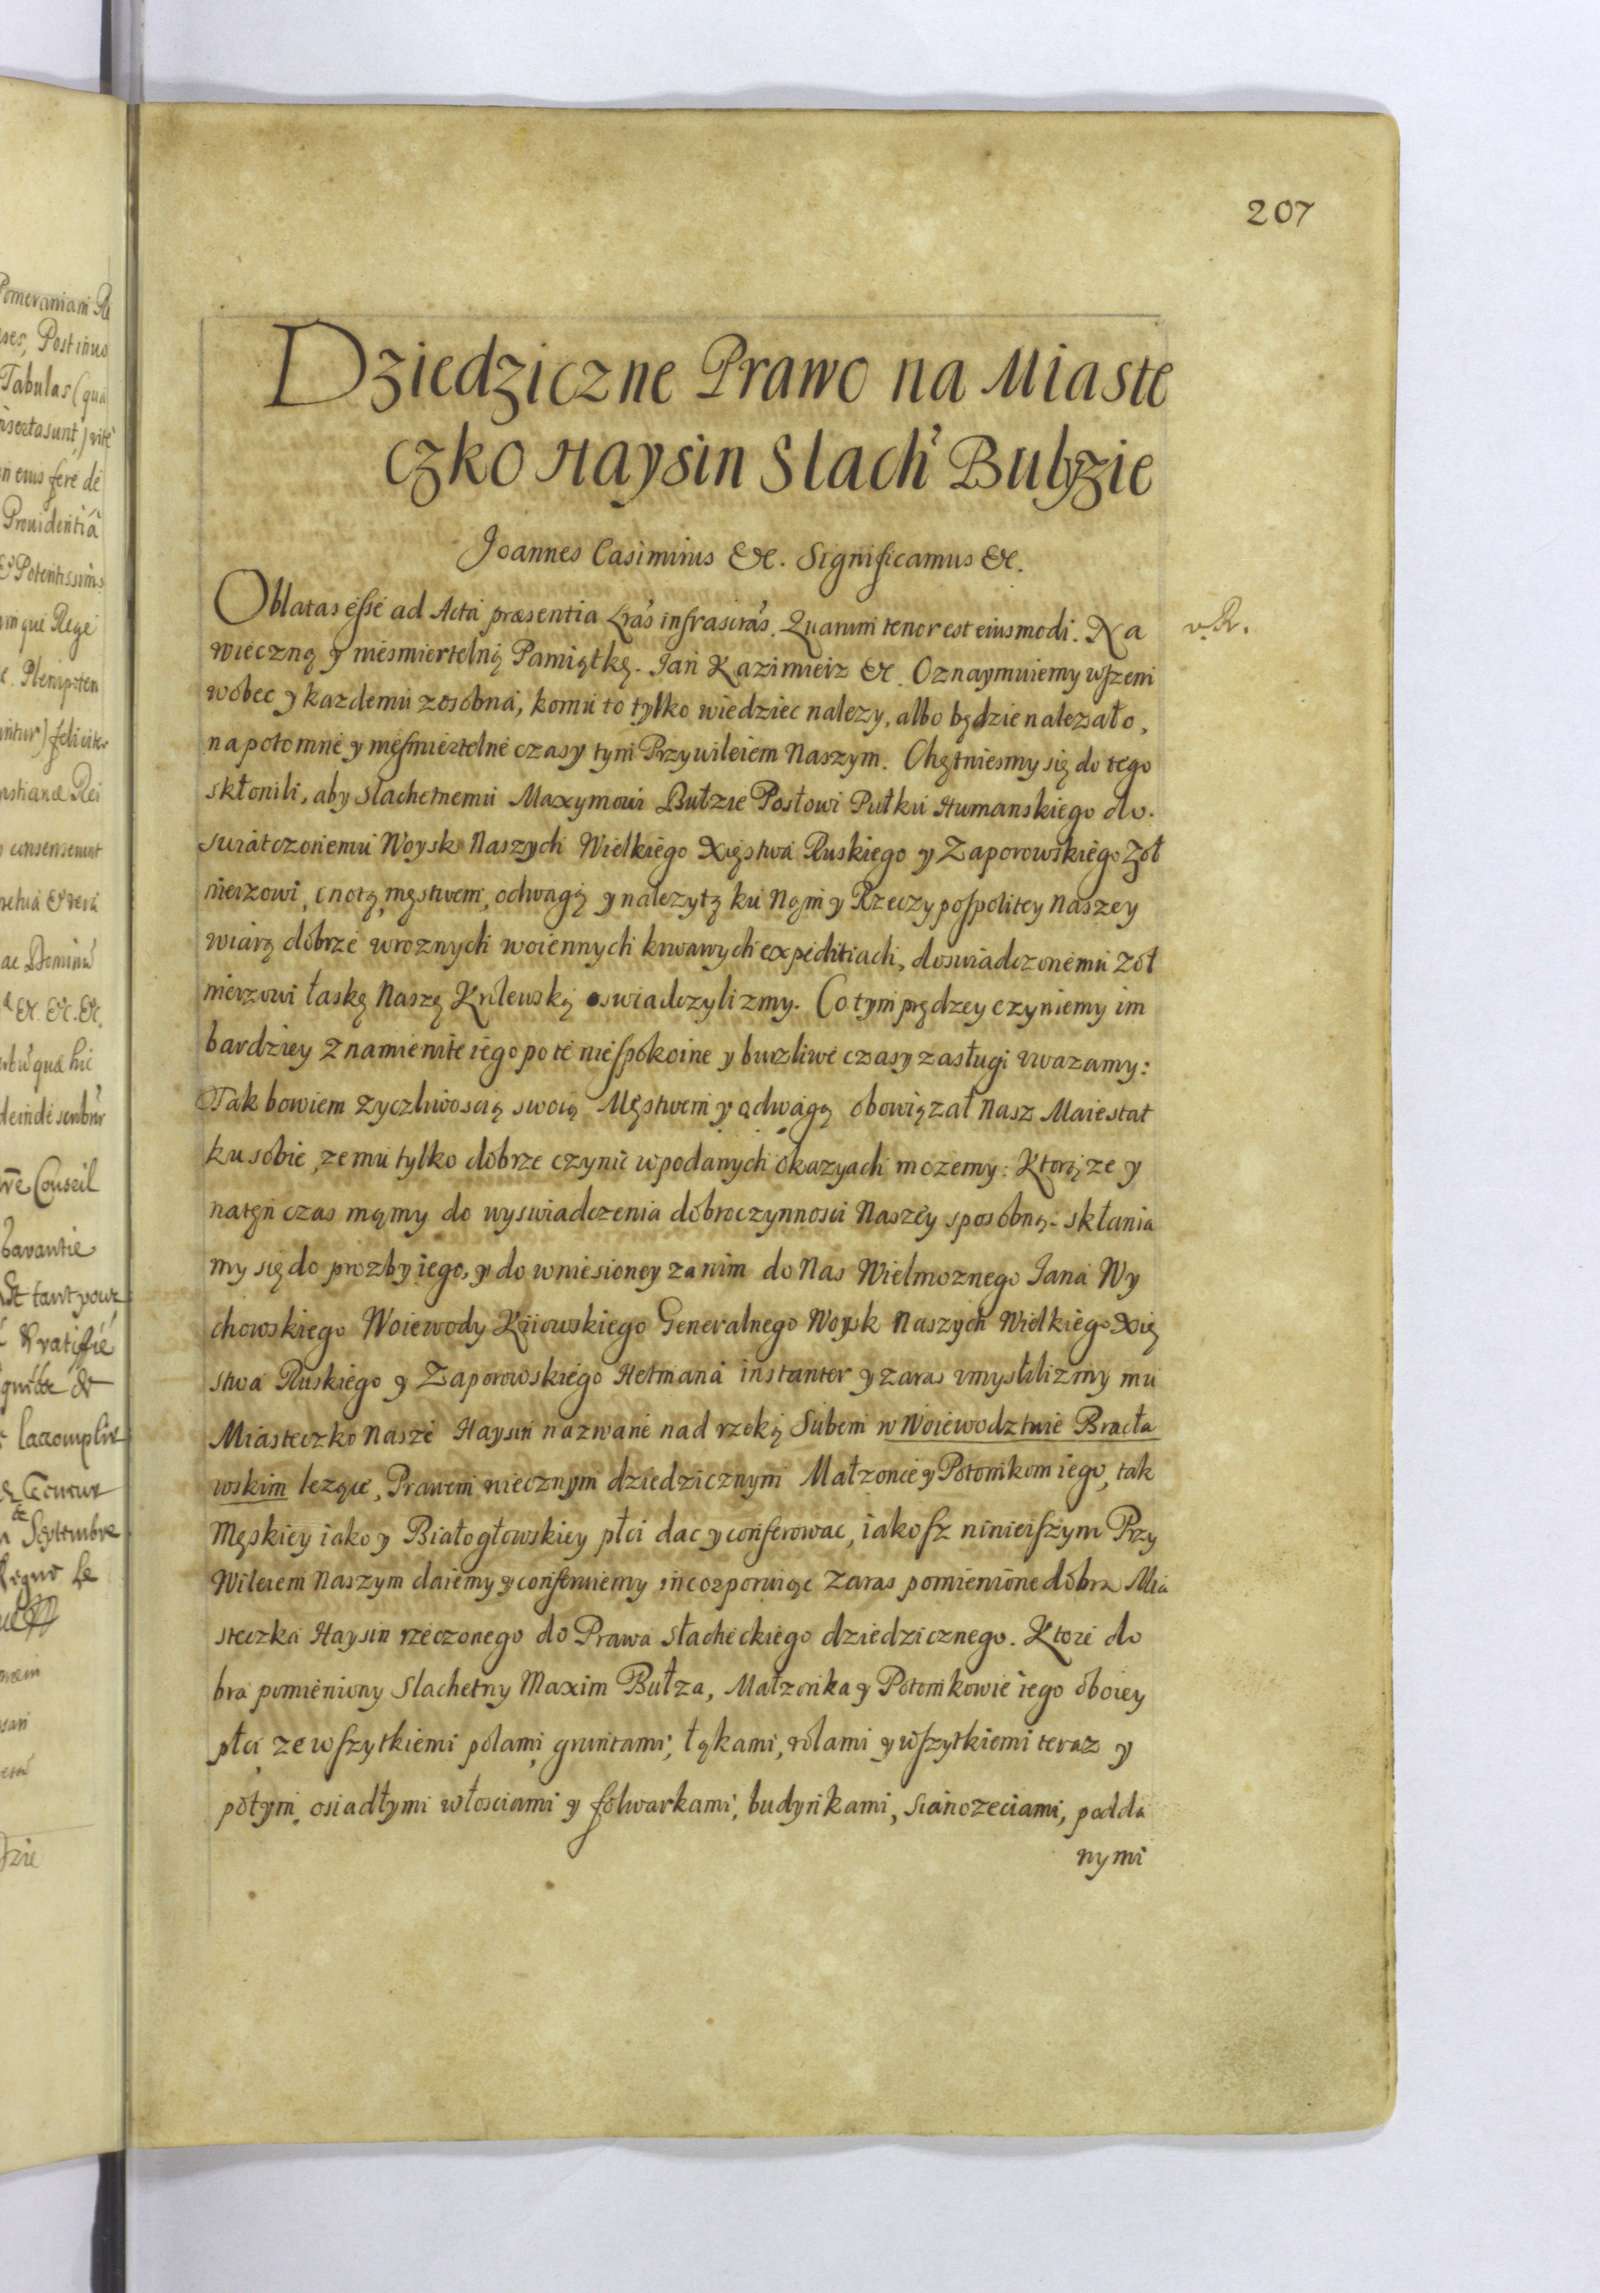 207
Dziedziczne Prawo na Miaste
czko Haysin Slach' Bulzie
Joannes Casimirus &c. Significamus &c.
Oblatas esse ad Acta præsentia Lras infrascras. Quarum tenor est eiusmodi. Na
wieczną y niesmiertelną Pamiątkę. Jan Kazimierz &c. Oznaymuiemy wszem
wobec y kazdemu zosobna, komu to tylko wiedziec nalezy, albo będzie nalezało,
napotomne y niesmiertelne czasy tym Przywileiem Naszym. Chętniesmy się do tego
skłonili, aby Slachetnemu Maxymowi Bułzie Posłowi Pułku Humanskiego do-
swiatczonemu Woysk Naszych Wielkiego Xięstwa Ruskiego y Zaporowskiego Zoł
nierzowi, cnotą, męstwem, odwagą y nalezytą ku Nam y Rzeczypospolitey Naszey
wiarą dobrze wroznych woiennych krwawych expeditiach, doswiadczonemu Zoł
nierzowi łaskę Naszę Krolewską oswiadczylizmy. Co tym prędzey czyniemy im
bardziey Znamienite iego po te niespokoine y burzliwe czasy zasługi uwazamy:
Tak bowiem zyczliwoscią swoią Męstwem y odwagą obowiązał Nasz Maiestat
ku sobie, ze mu tylko dobrze czynic wpodanych okazyach mozemy: Ktorą ze y
naten czas mamy do wyswiadczenia dobroczynnosci Naszey sposobną, skłania
my się do prozby iego, y do wniesioney za nim do Nas Wielmoznego Jana Wy
chowskiego Woiewody Kiiowskiego Generalnego Woysk Naszych Wielkiego Xię
stwa Ruskiego y Zaporowskiego Hetmana instanter y zaras umyslilizmy mu
Miasteczko Nasze Haysin nazwane nad rzeką Sobem w Woiewodztwie Bracła
wskim lezące, Prawem wiecznym dziedzicznym Małzonce y Potomkom iego, tak
Męskiey iako y Białogłowskiey płci dac y conferowac, iakosz ninieiszym Przy
Wileiem Naszym daiemy y conferuiemy incorporuiąc Zaras pomienione dobra Mia
steczka Haysin rzeczonego do Prawa słacheckiego dziedzicznego. Ktore do
bra pomieniony Slachetny Maxim Bułza, Małzonka y Potomkowie iego oboiey
płci ze wszytkiemi polami, gruntami, łąkami, rolami y wszytkiemi teraz y
potym osiadłymi włosciami y folwarkami, budynkami, sianozęciami, podda
nymi